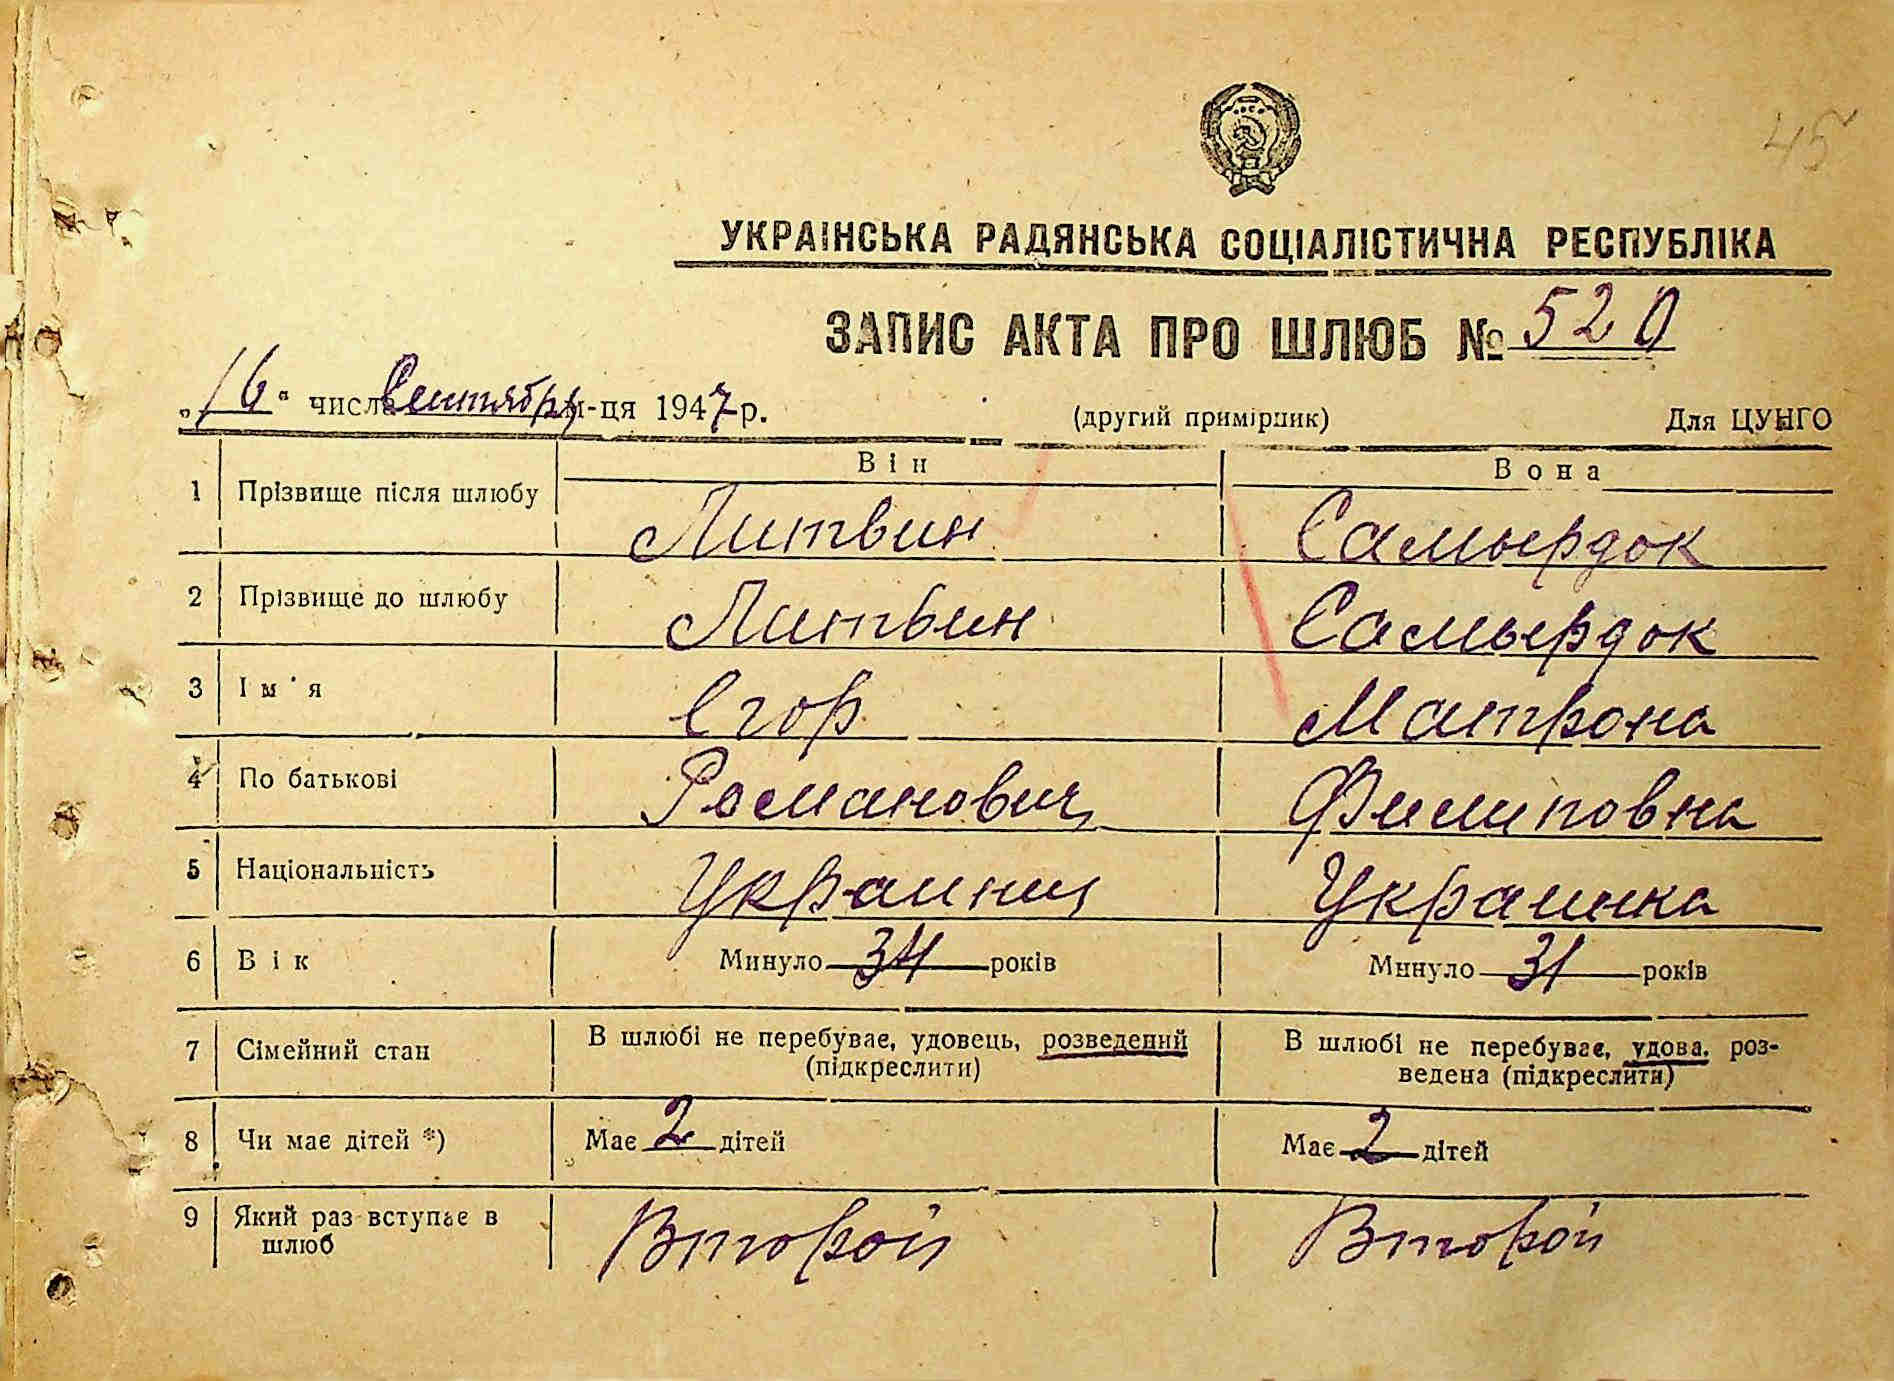 45
УКРАЇНСЬКА РАДЯНСЬКА СОЦІАЛІСТИЧНА РЕСПУБЛІКА
ЗАПИС АКТА ПРО ШЛЮБ № 520
„16" числа Сентября м-ця 1947 р. (другий примірник) Для ЦУНГО
Він Вона
1 Прізвище після шлюбу Литвин Самырдок
2 Прізвище до шлюбу Литвин Самырдок
3 Ім'я Егор Матрона
4 По батькові Романович Филиповна
5 Національність Украинец Украинка
6 Вік Минуло 34 років Минуло 31 років
7 Сімейний стан В шлюбі не перебуває, удовець, розведений В шлюбі не перебуває, удова, роз-
(підкреслити) ведена (підкреслити)
8 Чи має дітей *) Має 2 дітей Має 2 дітей
9 Який раз вступає в Второй Второй
шлюб